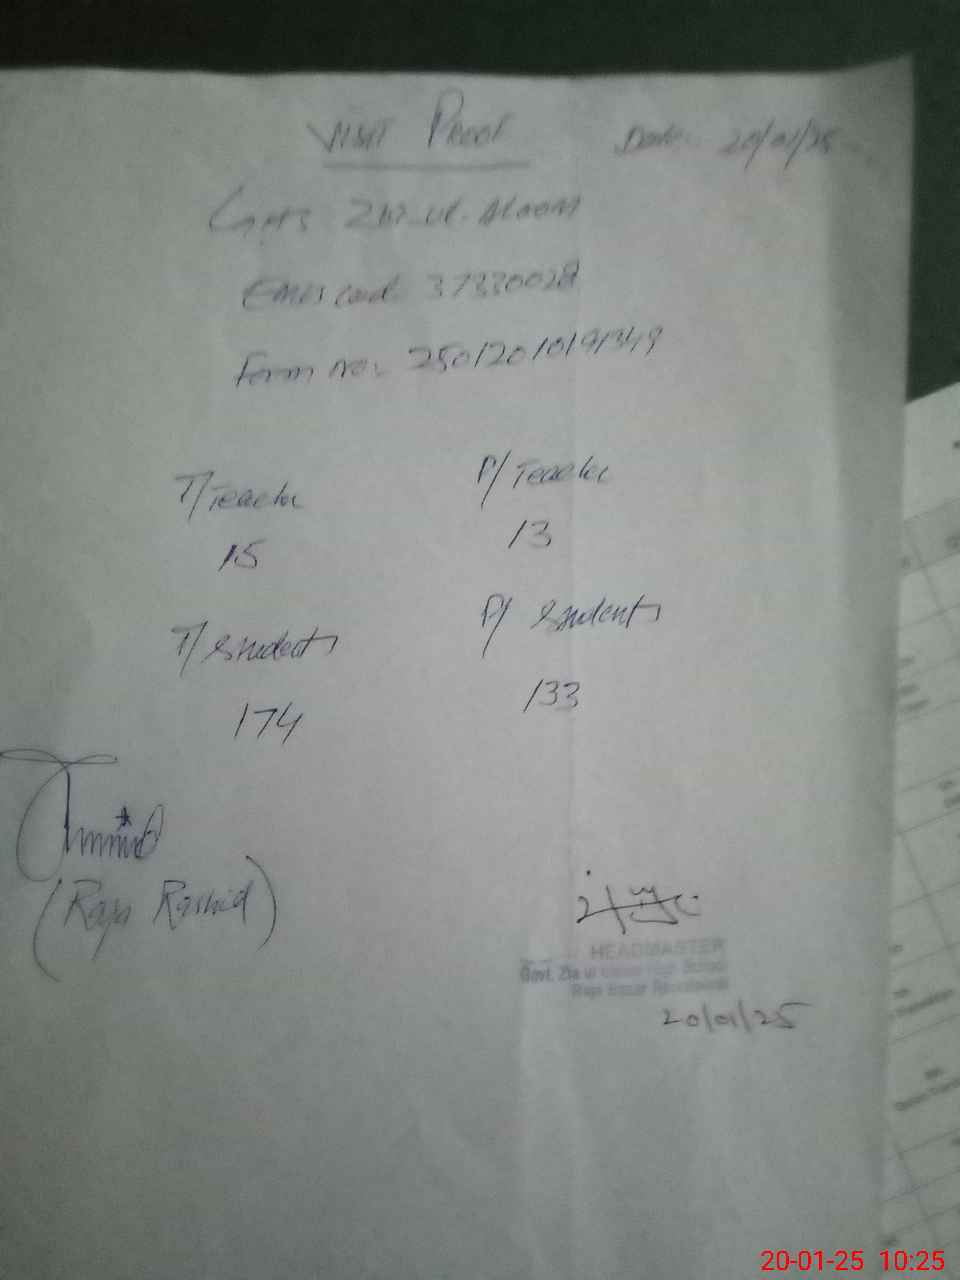 Visit Proof Date: 20/01/25
GHS Zia-ul-Aloom
Emis code: 37330028
Form no: 25012010191349
T/Teacher P/Teacher
15 13
T/Students P/Students
174 133
(Raja Rashid)
HEADMASTER
Govt. Zia ul High School
Raja Bazar Rawalpindi
20/01/25
20-01-25 10:25